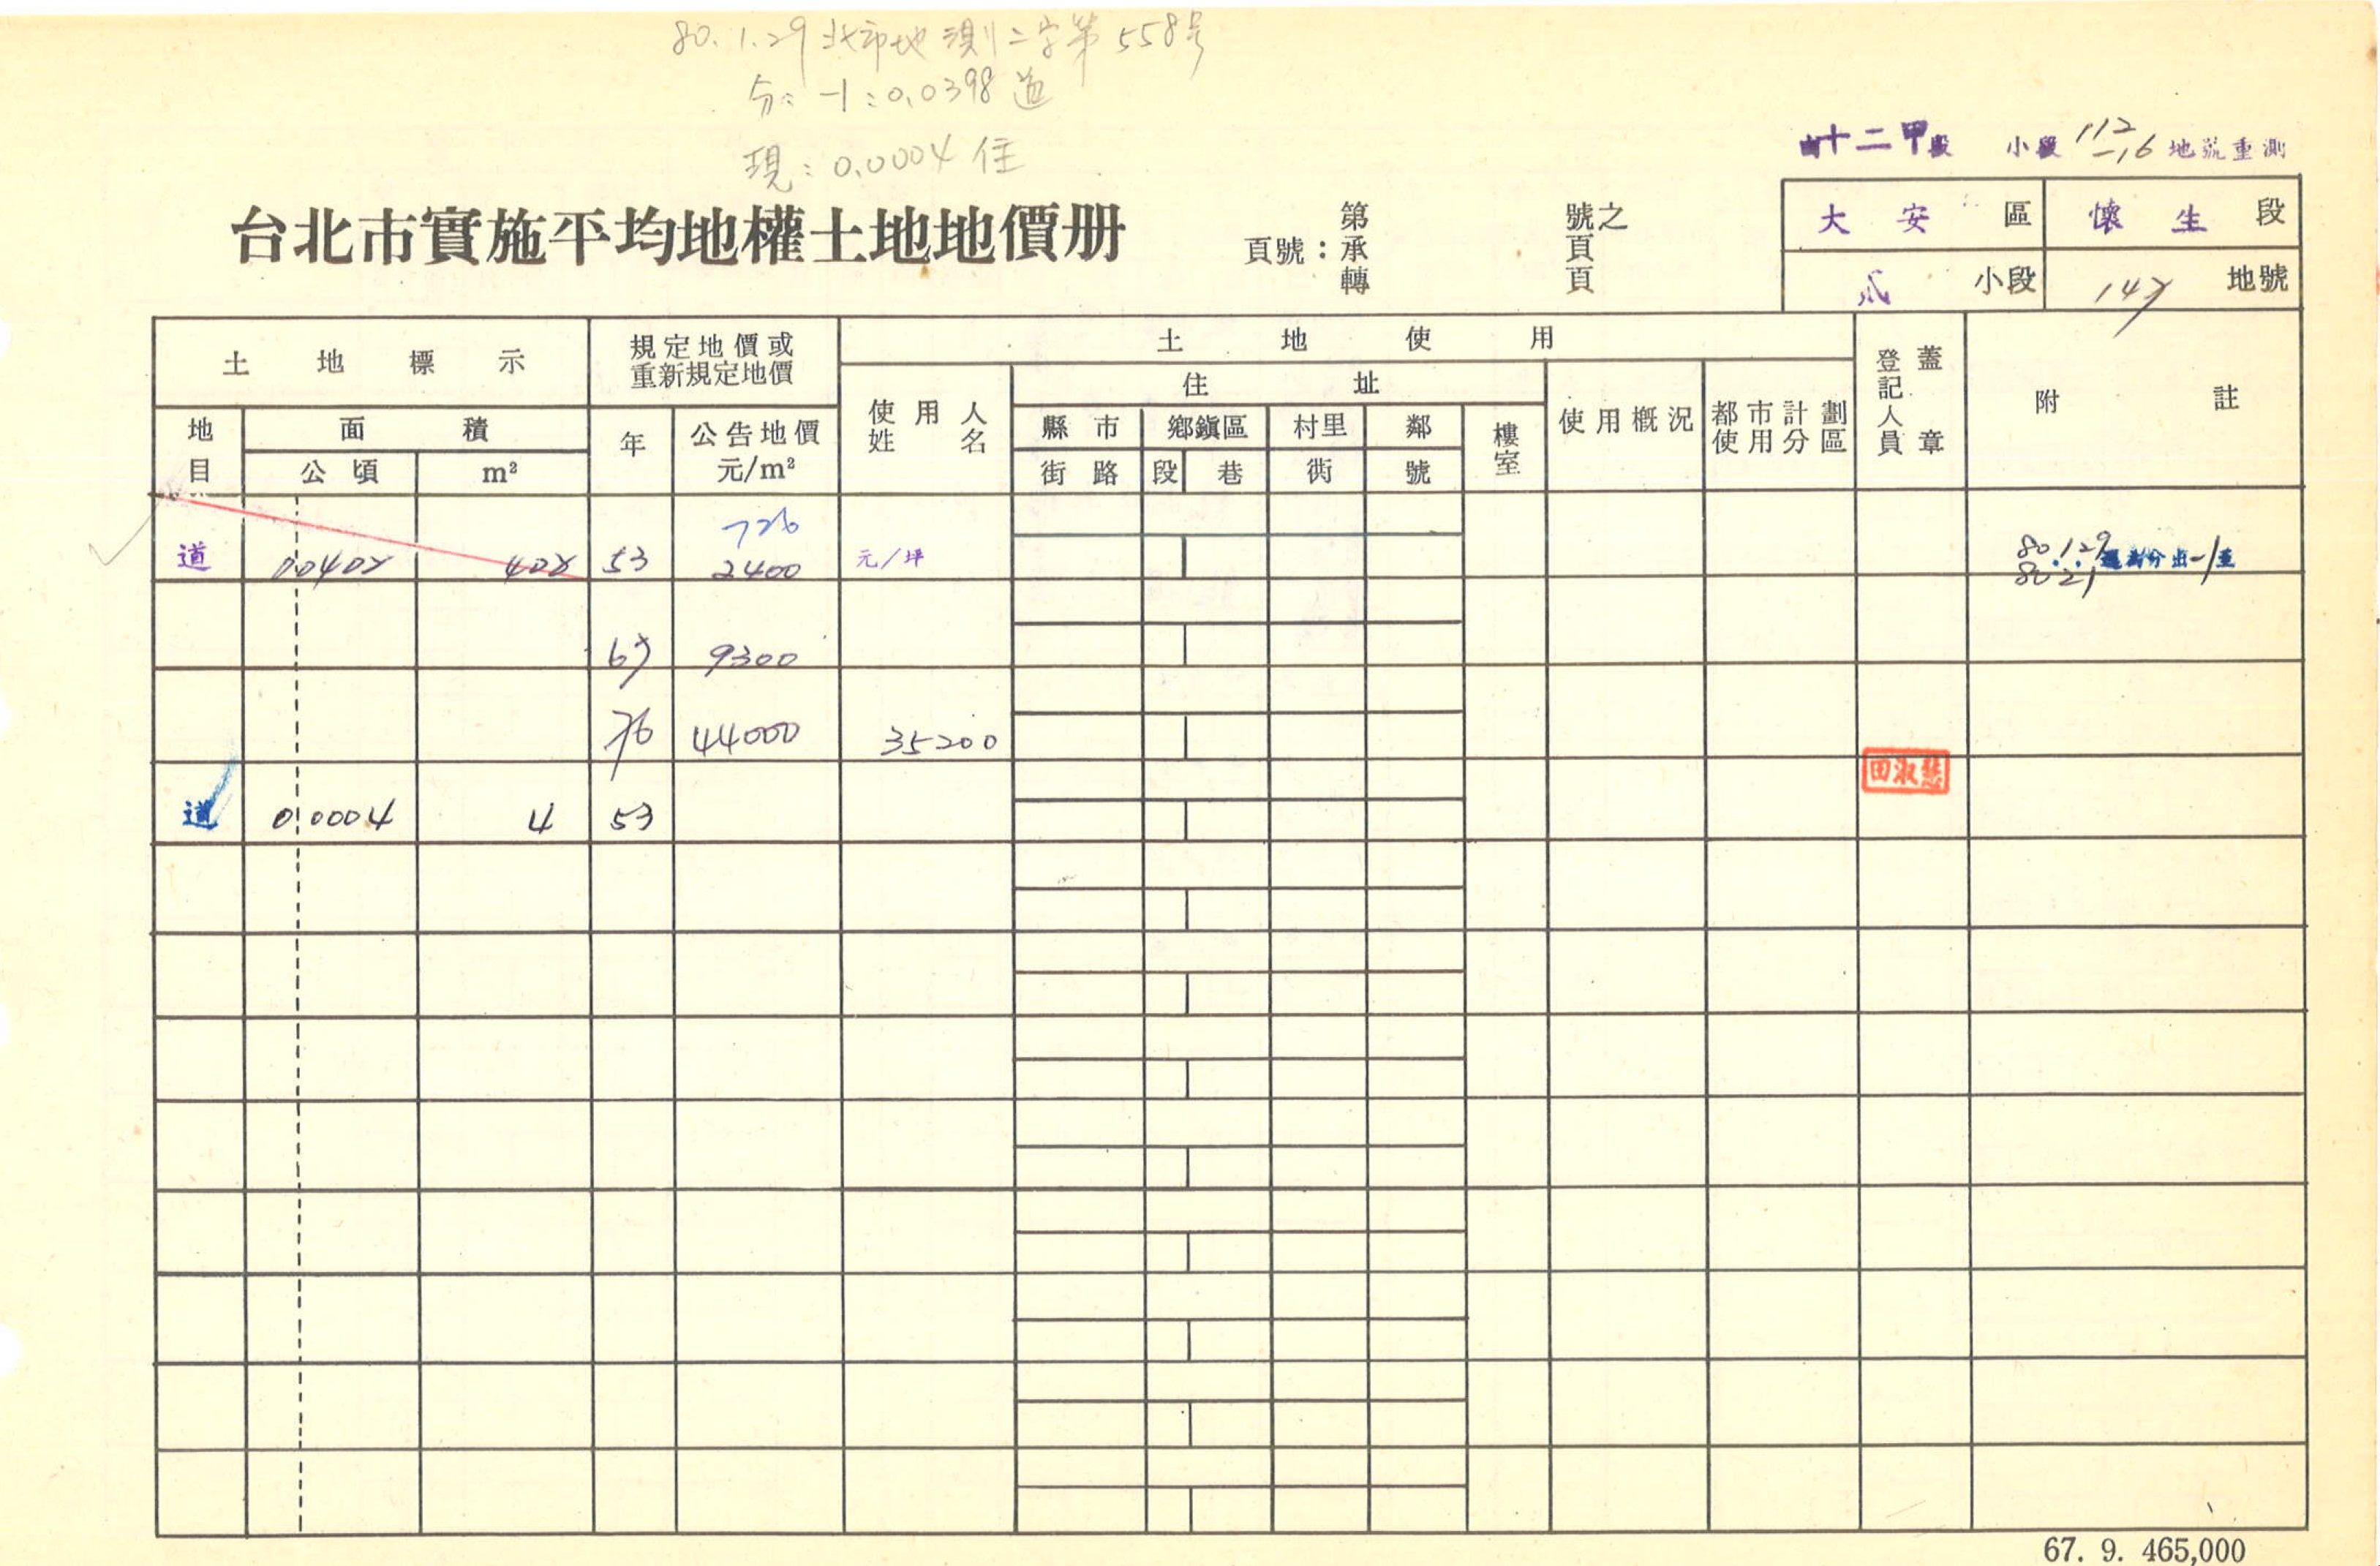 80.1.29北市地測二字第558号
分：-1：0.0398 道
現：0.0004 住
由十二甲段 小段 112-16 地號重測
台北市實施平均地權土地地價册
頁號：
第 號之
承 頁
轉 頁
大安區 懷生段
貳小段 147 地號
土地標示
規定地價或
重新規定地價
土地使用
登記人員 蓋章
附註
地目
面積
公頃
m²
年
公告地價
元/m²
使用人
姓名
住址
縣市 鄉鎮區 村里 鄰
街路 段 巷 衖 號
樓室
使用概況
都市計劃
使用分區
726
道 0.0402 402 53 2400 元/坪
80.1.29 逕割分出-1至
80.2.1
67 9300
76 44000 35200
道 0.0004 4 53
67. 9. 465,000